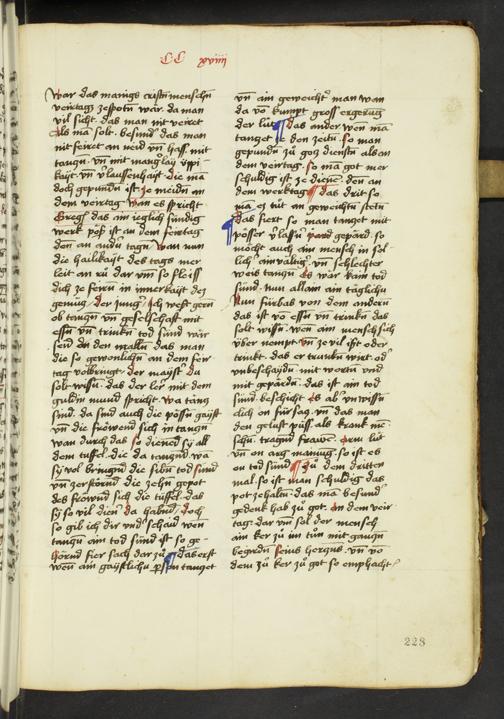 CC xviiij
war das manigs cristenmenschn
veirtags zespotn wär. da man
vil sicht. das man nit veiret
Als ma solt. besund das man
nit feiret an neid vn hass. mit
tanczn. vn mit manglay üppi-
kayt vn vlaussenhayt. die ma
doch gepundn ist ze meidn an
dem veirtag. wan es spricht
Gregs das ain ieglich sündig
werk pöss ist an dem feirtag
den an andn tagn. wan nun
die hailikayt des tags mer
leit an rü dar vm so fleiss
dich ze feirn in innerkayt des
genuog. der jung. Ich west gern
ob tanczn vn geselschaft mit
essn vn trinkn tod sünd wär
seid an den mallen das man
die so gewonlichn an dem feir
tag volbringt. der maystr. du
solt wissn. das der ler mit dem
guldin mund spricht. wa täncz
sind. da sind auch die pössn gayst
vn die fröwend sich in tanczn
wan durch das so dienend sy all
dem tuffel. die da tanczend. wa
sy vol bringend die sibn tod sünd
vn zerstörnd die zehn gepot
des fröwnd sich die tüffel. das
sy so vil dienr da habnd. Doch
so gib ich dir vnd schaid wen
tanczn ain tod sünd ist so ge-
hörnd fier sach dar zuo. ¶ das erst
wen ain gaystlichn psson tanczet
vn ain geweicht man wan
da vo kumpt gross ergerung
der lüt ¶ das ander wen ma
tanczet ze den zeitn. so man
gepundn zuo gocz dienstn als an
dem veirtag. so ma got mer
schuldig ist ze dienen. den an
dem werktag ¶ das drit. so
ma es tuot an geweichtn stetn
¶ das fiert so man tanczet mit
pösser vlassn gepärd. so
möcht auch ain mensch in sol
lichr ainvaltigr vn schlechter
weis tanczn. es wär kain tod
sünd. nun allain ain täglichn
Nun fürbas von dem andern
das ist vo essn vn trinkn. das
solt wissn. wen ain mensch sich
über nempt vn ze vil ist oder
trinkt. das er trunkn wirt. od
unbeschaydn mit wortn vnd
mit gepärdn. das ist ain tod
sünd. beschicht es ab unwissn
clich on fürsacz. vn das man
den gelust püss. als krank me-
schn. tragend frawen. Arm lüt
vn on arg manung. so ist es
on tod sünd ¶ Zuo dem dritten
mal. so ist man schuldig das
pot zehaltn. das ma besund
gedenk hab zuo got. An dem veir
tag. dar vm sol der mensch
ain ker zuo im tuon mit ganczn
begerdn seins herczns. vn vo
dem zuo ker zuo got so emphacht
228